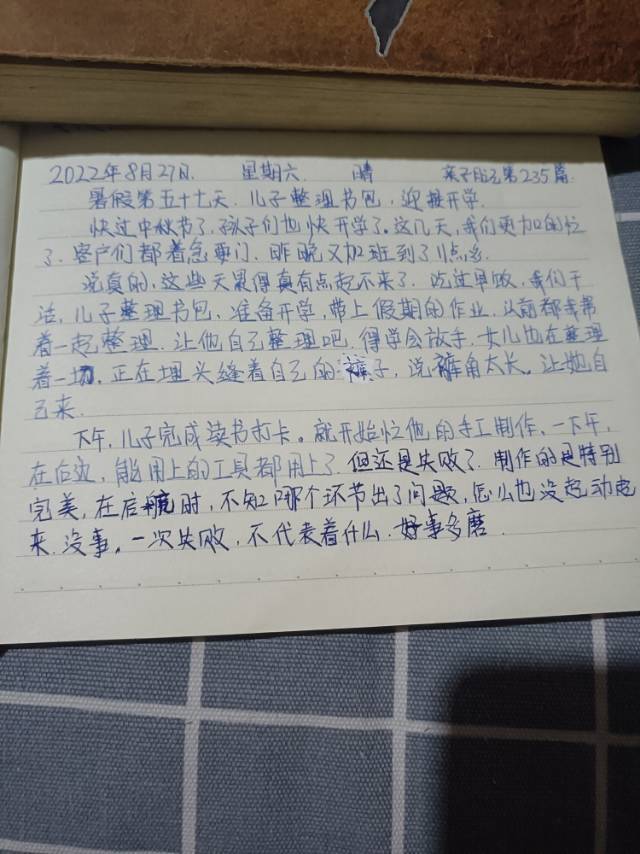 2022年8月27日. 星期六. 晴 亲子日记第235篇.
暑假第五十七天. 儿子整理书包, 迎接开学.
快过中秋节了, 孩子们也快开学了。这几天, 我们更加的忙
了. 客户们都着急要门. 昨晚又加班到了11点多.
说真的, 这些天累得真有点起不来了. 吃过早饭, 我们干
活, 儿子整理书包, 准备开学, 带上假期的作业. 以前都我帮
着一起整理. 让他自己整理吧. 得学会放手. 女儿也在整理
着一切, 正在埋头缝着自己的裤子, 说裤角太长. 让她自
己来.
下午, 儿子完成读书打卡。就开始忙他的手工制作. 一下午,
在后边, 能用上的工具都用上了. 但还是失败了. 制作的是特别
完美, 在启动时, 不知哪个环节出了问题, 怎么也没起动起
来. 没事。一次失败, 不代表着什么. 好事多磨.